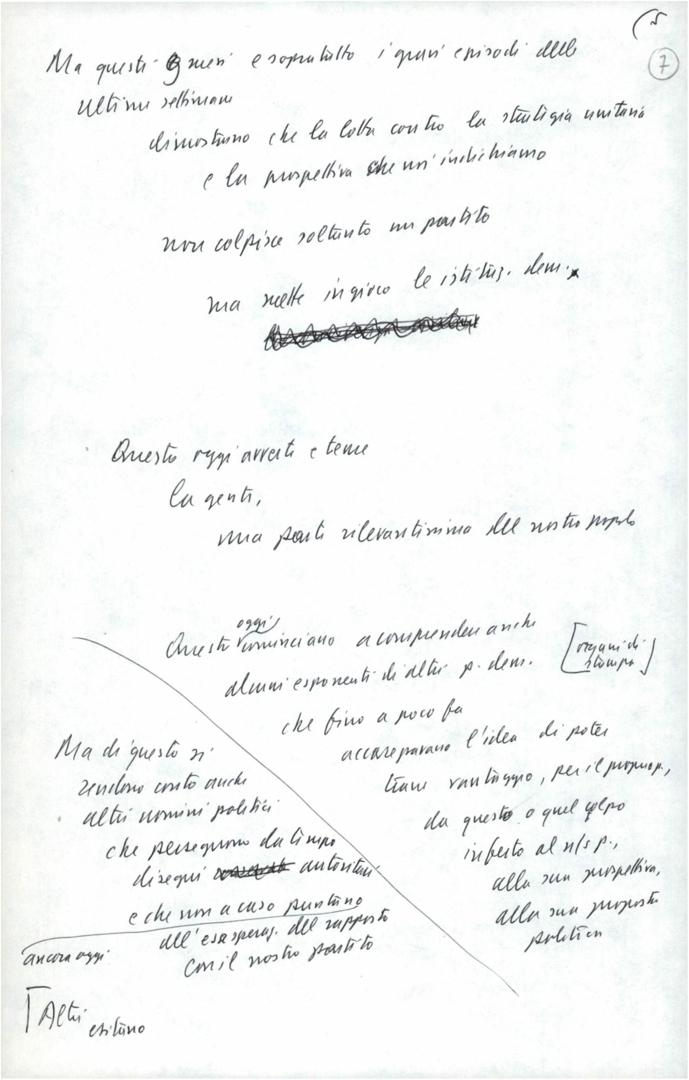 5
7
Ma questi 9 mesi e sopratutto i gravi episodi delle
ultime settimane
dimostrano che la lotta contro la strategia unitaria
e la prospettiva che noi indichiamo
non colpisce soltanto un partito
ma mette in gioco le istituz. dem.
Questo oggi avverte e teme
la gente,
una parte rilevantissima del nostro popolo
oggi
Questo cominciano a comprendere anche
alcuni esponenti di altri p. dem.
[organi di
stampa]
che fino a poco fa
accarezzavano l'idea di poter
trarre vantaggio, per il proprio p.,
da questo o quel colpo
inferto al n/s p.,
alla sua prospettiva,
alla sua proposta
politica
Ma di questo si
rendono conto anche
altri uomini politici
che perseguono da tempo
disegni autoritari
e che non a caso puntano
ancora oggi
all'esasperaz. del rapporto
con il nostro partito
Altri
esitano